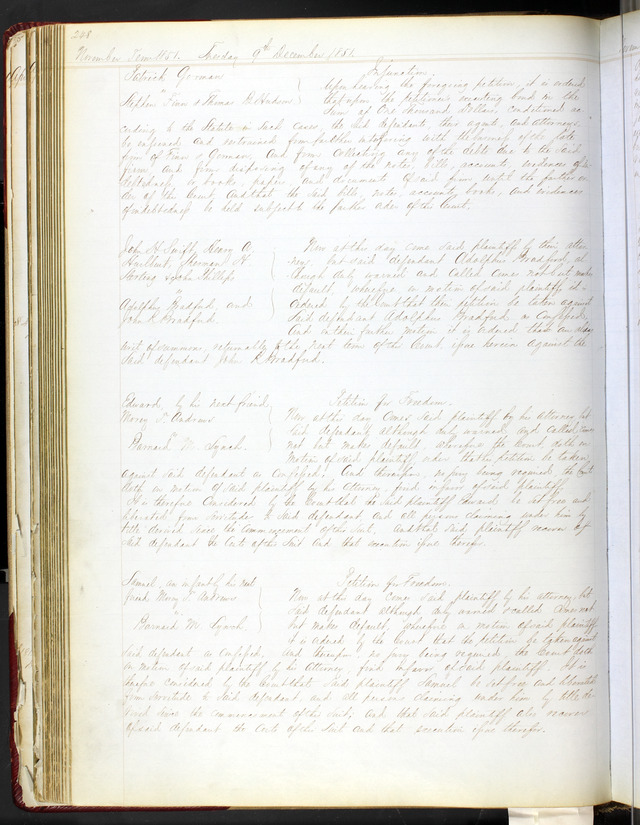 208
November Term 1851. Tuesday 9th December 1851.
Patrick Gorman
vs
Stephen Finn & Thomas B. Hudson
Injunction.
Upon hearing the foregoing petition, it is ordered
that upon the petitioners executing bond in the
sum of thousand dollars conditioned ac
cording to the Statute in such cases, the said defendants, their agents, and attorneys
be enjoined and restrained from further interfering with the business of the late
firm of Finn & Gorman, and from collecting any of the debts due to the said
firm, and from disposing of any of the notes, bills, accounts, evidences of in
debtedness, books, papers and documents of said firm, until the further or
der of the Court, and that the said bills, notes, accounts, books, and evidences
of indebtedness be held subject to the further order of the Court.
John H. Swift, Henry A.
Hurlbut, Sherman H.
& John Phillips
vs
Adolphus Bradford, and
John R. Bradford
Now at this day come said plaintiffs by their attor
ney, but said defendant Adolphus Bradford, al
though duly warned and called comes not but makes
default, wherefore on motion of said plaintiffs it is
ordered by the Court that their petition be taken against
said defendant Adolphus Bradford as confessed,
And on their further motion it is ordered that an alias
writ of summons, returnable to the next term of this Court, issue herein against the
said defendant John R. Bradford.
Edward, by his next friend
Mercy T. Andrews
vs
Barnard M. Lynch.
Petition for Freedom.
Now at this day comes said plaintiff by his attorney, but
said defendant although duly warned and called comes
not but makes default wherefore the Court doth on
motion of said plaintiff order that the petition be taken
against said defendant as confessed, And therefore no jury being required the Court
doth on motion of said plaintiff by his attorney find in favor of said plaintiff
It is therefore considered by the Court that the said plaintiff Edward be set free and
liberated from servitude to said defendant, and all persons claiming under him by
title derived since the commencement of this suit. And that said plaintiff recover of
said defendant the costs of this suit and that execution issue therefor.
Samuel, an infant by his next
friend Mercy T. Andrews
vs
Barnard M. Lynch
Petition for Freedom.
Now at this day comes said plaintiff by his attorney, but
said defendant although duly warned & called comes not
but makes default, wherefore on motion of said plaintiff
it is ordered by the Court that the petition be taken against
said defendant as confessed, and therefore no jury being required, the Court doth
on motion of said plaintiff by his attorney, find in favor of said plaintiff. It is
therefore considered by the Court that said plaintiff Samuel be set free and liberated
from servitude to said defendant and all persons claiming under him by title de
rived since the commencement of this suit, and that said plaintiff also recover
of said defendant the costs of this suit and that execution issue therefor.